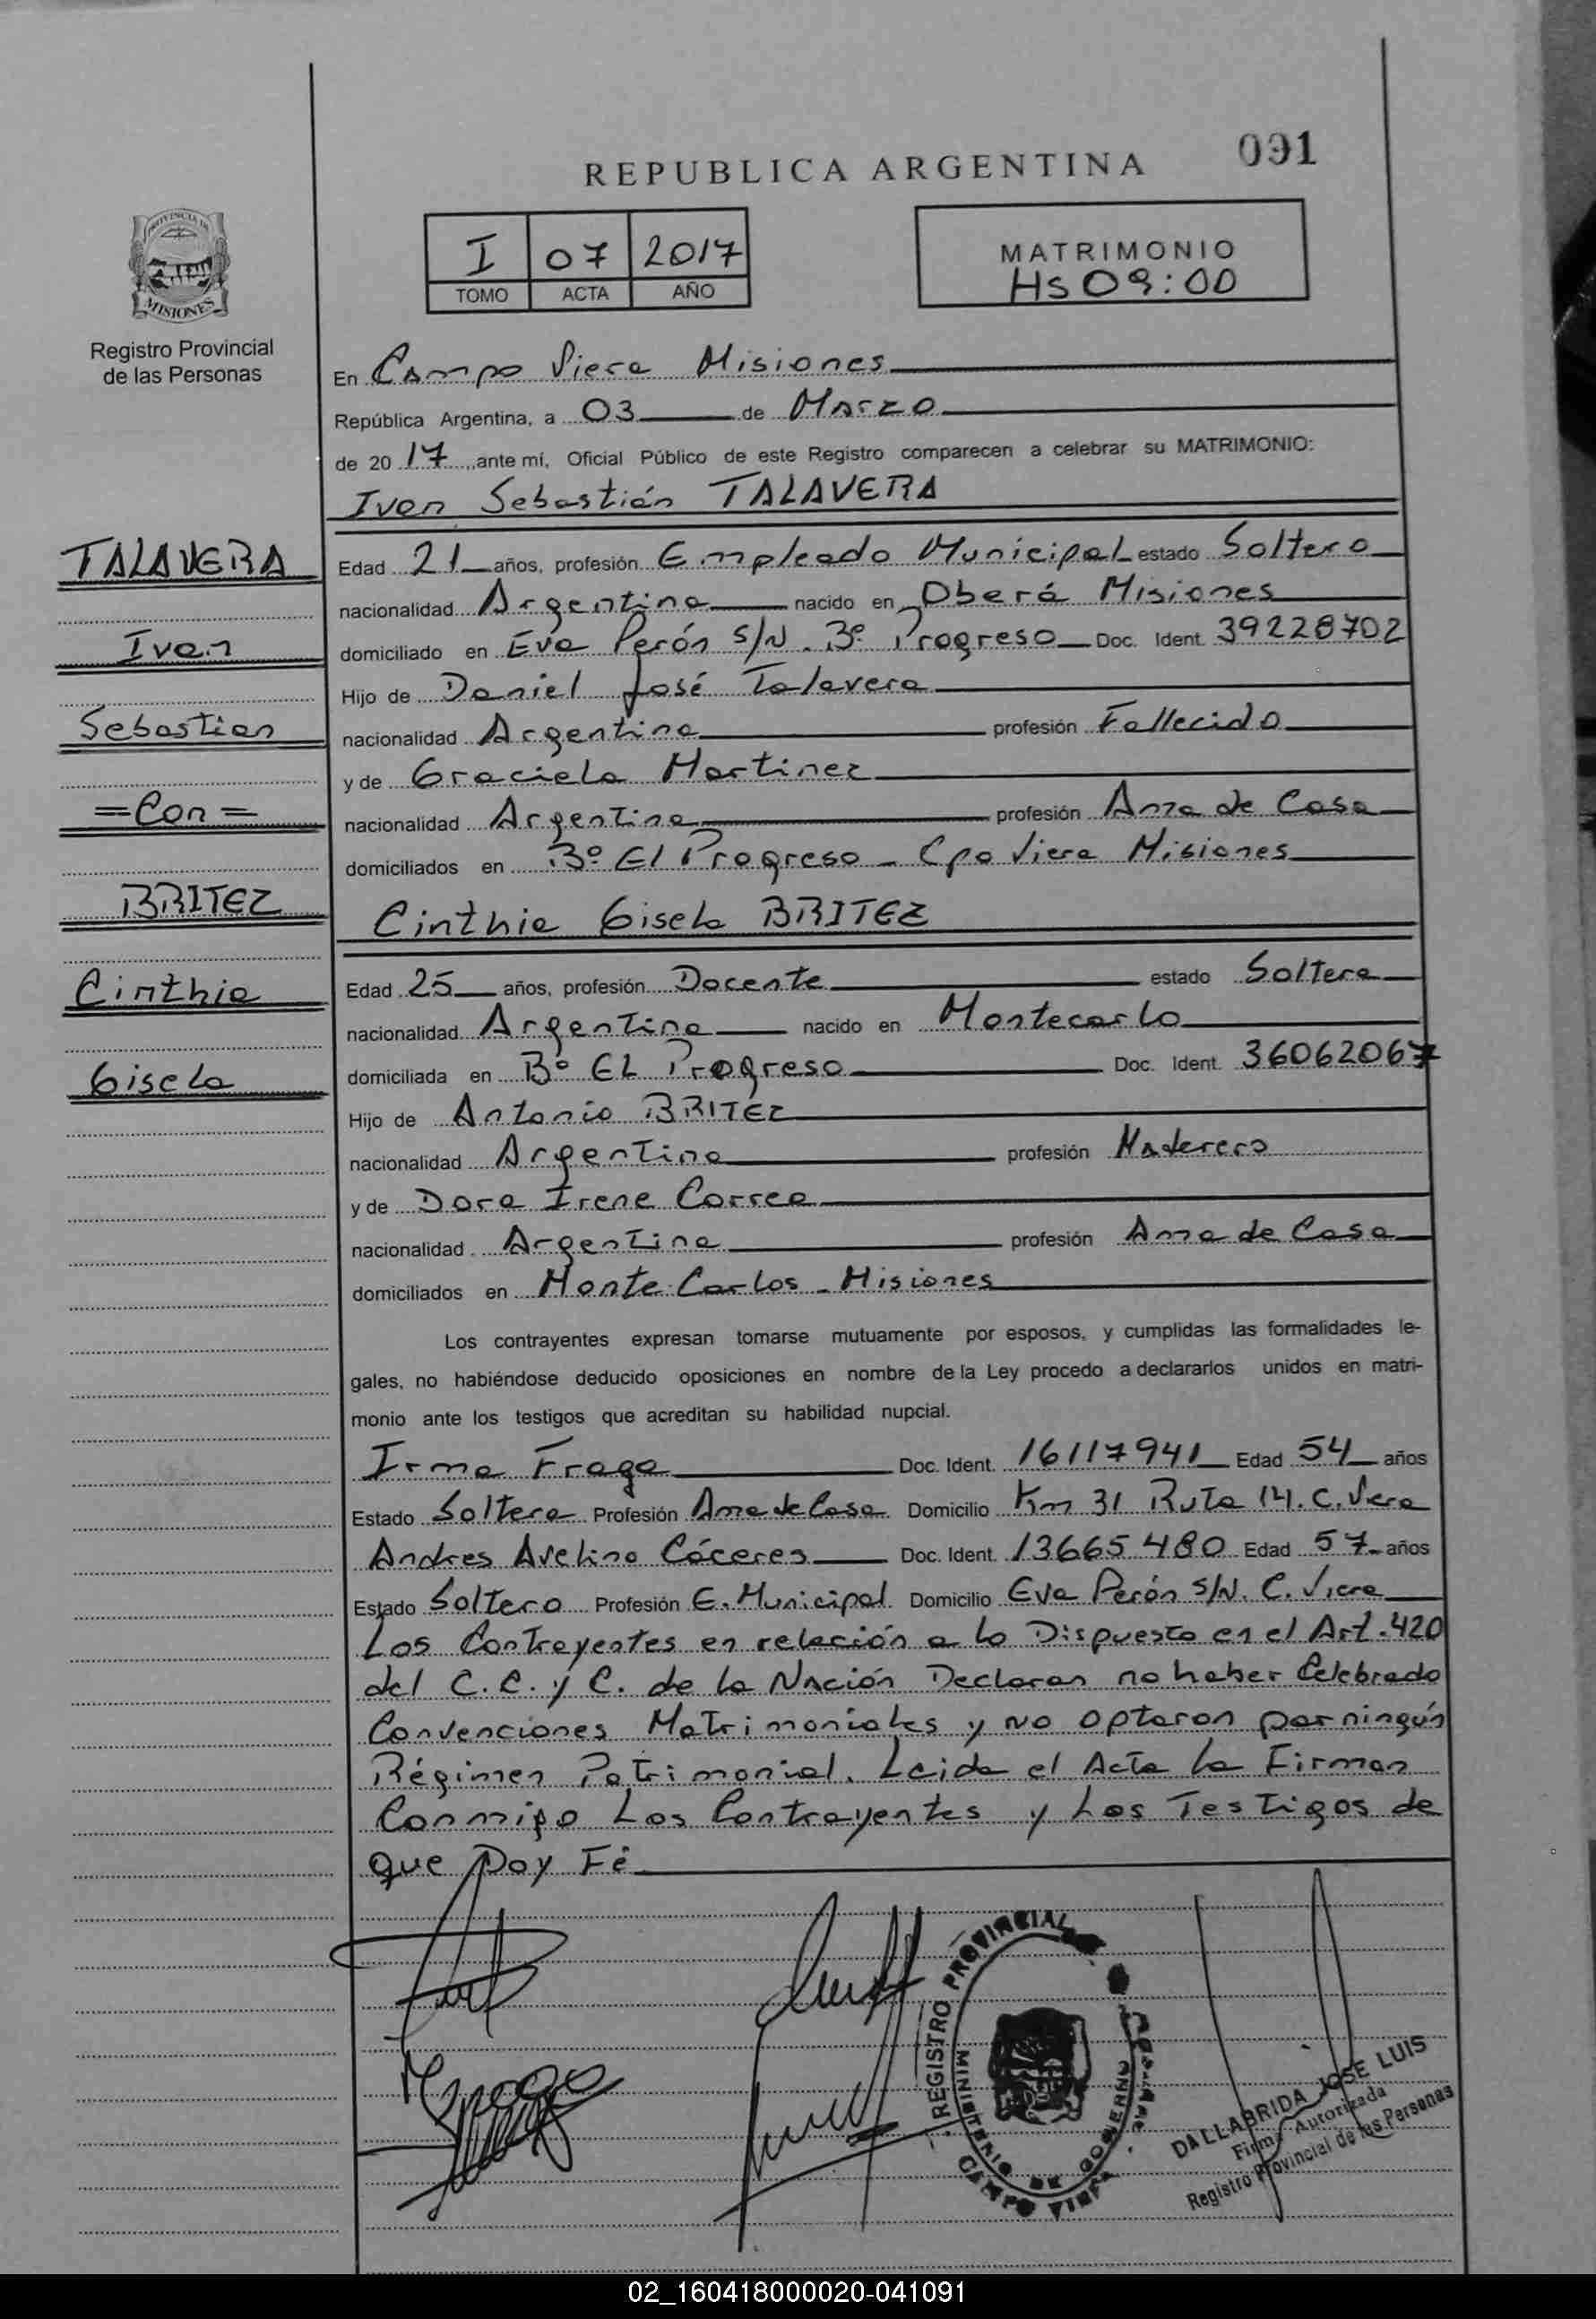 REPUBLICA ARGENTINA
091
PROVINCIA DE
MISIONES
Registro Provincial
de las Personas
I 07 2017
TOMO ACTA AÑO
MATRIMONIO
Hs 09:00
En Campo Viera Misiones
República Argentina, a 03 de Marzo
de 2017, ante mí, Oficial Público de este Registro comparecen a celebrar su MATRIMONIO:
Ivan Sebastián TALAVERA
TALAVERA
Ivan
Sebastian
=Con=
BRITEZ
Cinthia
Gisela
Edad 21 años, profesión Empleado Municipal estado Soltero
nacionalidad Argentina nacido en Oberá Misiones
domiciliado en Eva Perón S/N. Bº Progreso Doc. Ident. 39228702
Hijo de Daniel José Talavera
nacionalidad Argentina profesión Fallecido
y de Graciela Martinez
nacionalidad Argentina profesión Ama de Casa
domiciliados en Bº El Progreso - Cpo Viera Misiones
Cinthia Gisela BRITEZ
Edad 25 años, profesión Docente estado Soltera
nacionalidad Argentina nacido en Montecarlo
domiciliada en Bº EL Progreso Doc. Ident. 36062067
Hijo de Antonio BRITEZ
nacionalidad Argentina profesión Maderero
y de Dora Irene Correa
nacionalidad Argentina profesión Ama de Casa
domiciliados en Monte Carlos - Misiones
Los contrayentes expresan tomarse mutuamente por esposos, y cumplidas las formalidades le-
gales, no habiéndose deducido oposiciones en nombre de la Ley procedo a declararlos unidos en matri-
monio ante los testigos que acreditan su habilidad nupcial.
Irma Fraga Doc. Ident. 16117941 Edad 54 años
Estado Soltera Profesión Ama de Casa Domicilio Km 31 Ruta 14. C. Vera
Andres Avelino Cáceres Doc. Ident. 13665480 Edad 57 años
Estado Soltero Profesión E. Municipal Domicilio Eva Perón S/N. C. Viera
Los Contrayentes en relación a lo Dispuesto en el Art. 420
del C. C. y C. de la Nación Declaran no haber Celebrado
Convenciones Matrimoniales y no optaron por ningún
Régimen Patrimonial. Leida el Acta la Firman
Conmigo Los Contrayentes y Los Testigos de
que Doy Fé
REGISTRO PROVINCIAL
MINISTERIO DE GOBIERNO
CAMPO VIERA
DALLABRIDA JOSE LUIS
Firma Autorizada
Registro Provincial de las Personas
02_160418000020-041091